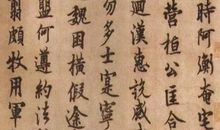 時阿衡奄宅
營桓公匡合
迴漢惠說感
勿多士寔寧
魏困橫假途
盟何遵約法
翦頗牧用軍